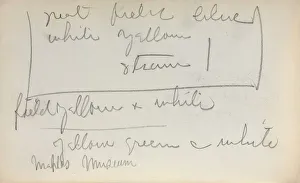 next field blue
white yellow
stream
field yellow & white
yellow green & white
Museum